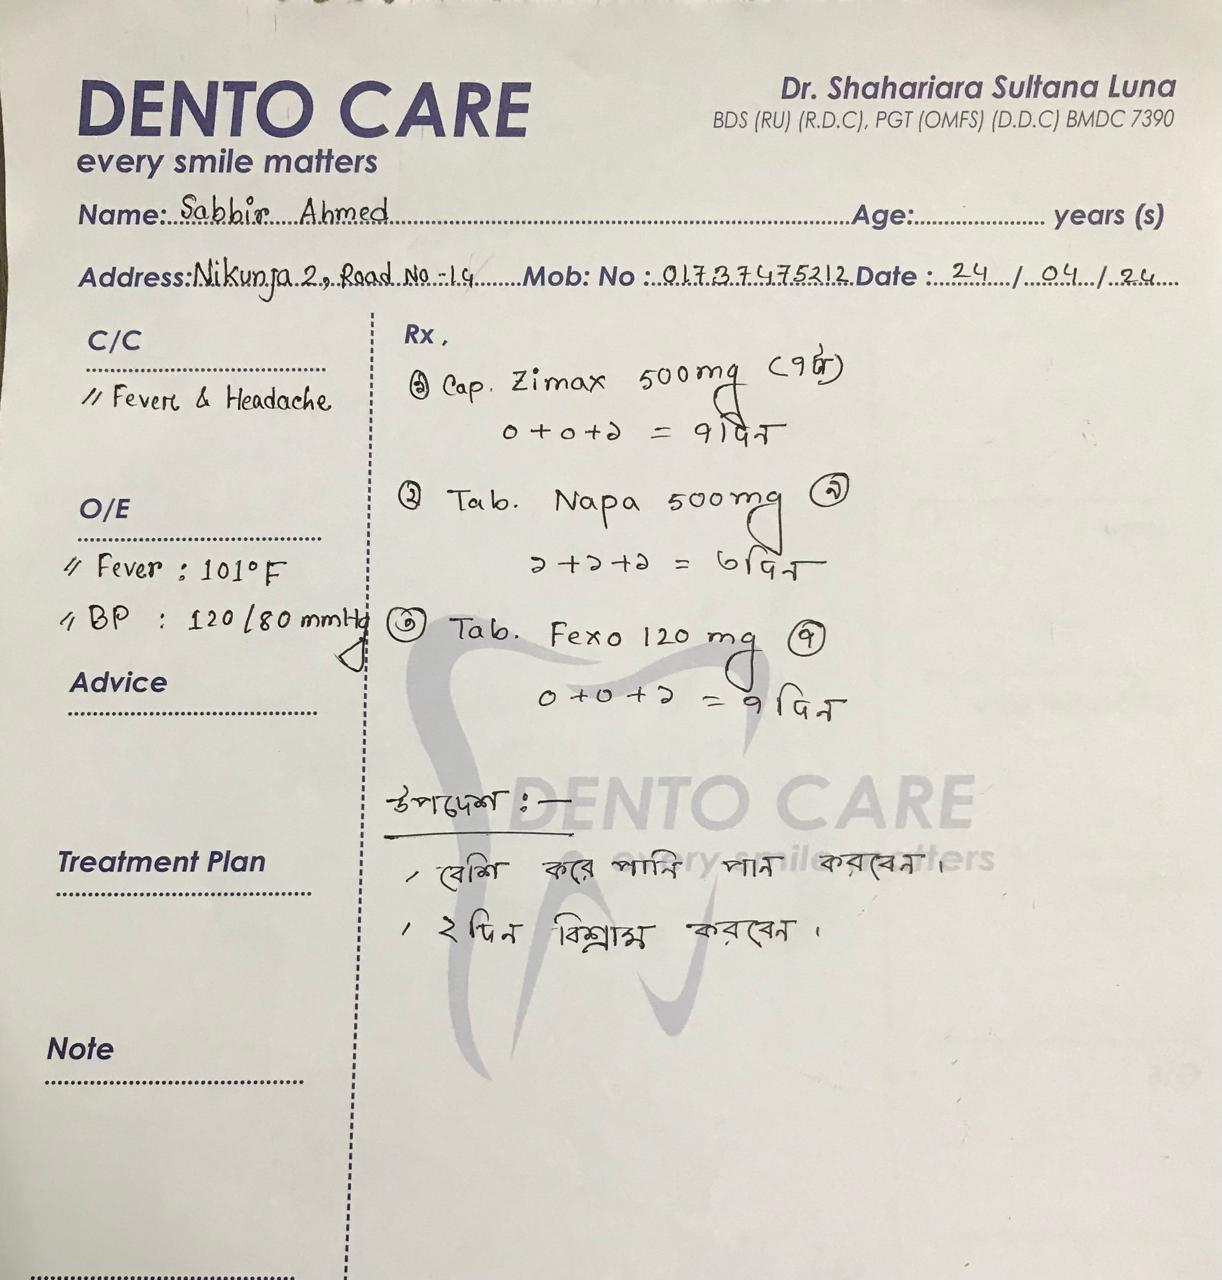 DENTO CARE
every smile matters
Dr. Shahariara Sultana Luna
BDS (RU) (R.D.C), PGT (OMFS) (D.D.C) BMDC 7390
Name: Sabbir Ahmed Age: years (s)
Address: Nikunja 2, Road No-14 Mob: No : 01737475212 Date : 24/04/24
C/C
// Fever & Headache
O/E
// Fever : 101°F
// BP : 120/80 mmHg
Advice
Treatment Plan
Note
Rx,
① Cap. Zimax 500mg (৭টি)
০+০+১ = ৭দিন
② Tab. Napa 500mg ৯
১+১+১ = ৩দিন
③ Tab. Fexo 120 mg ৭
০+০+১ = ৭ দিন
উপদেশ :—
, বেশি করে পানি পান করবেন।
, ২ দিন বিশ্রাম করবেন।
DENTO CARE
every smile matters